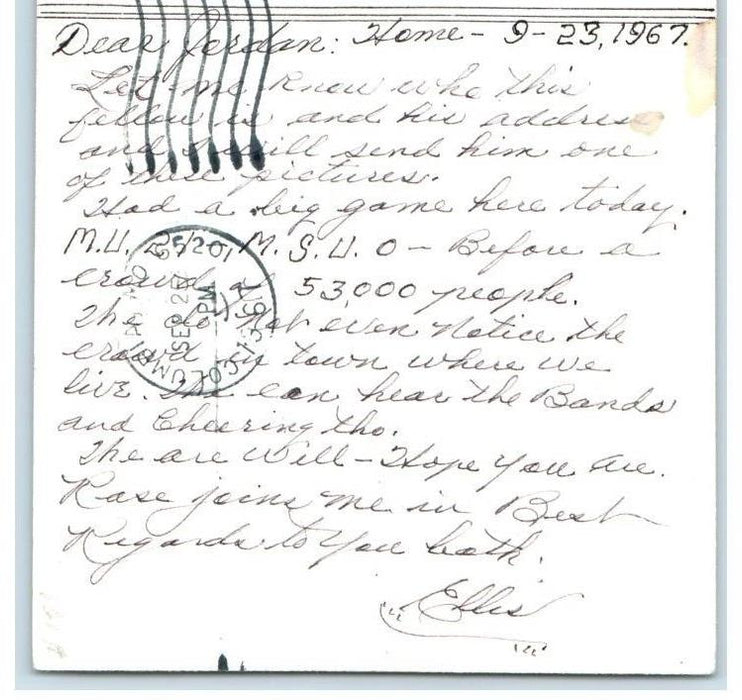 Dear Jordan: Home - 9-23, 1967.
Let me know who this
fellow is and his address
and I will send him one
of these pictures.
Had a big game here today.
M.U. M.S.U. 0 - Before a
crowd of 53,000 people.
We do Not even Notice the
crowd in town where we
live. We can hear the Bands
and Cheering tho.
We are Well - Hope you are.
Rose joins me in Best
Regards to You both.
"Ellis"
SEP
PM
1967